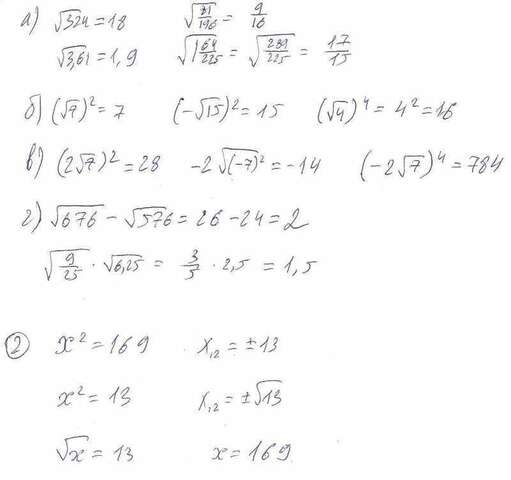 а) √324 = 18 √(81/196) = 9/16
√3,61 = 1,9 √(1 64/225) = √(289/225) = 17/15
б) (√7)² = 7 (-√15)² = 15 (√4)⁴ = 4² = 16
в) (2√7)² = 28 -2√(-7)² = -14 (-2√7)⁴ = 784
г) √676 - √576 = 26 - 24 = 2
√(9/25) · √6,25 = 3/5 · 2,5 = 1,5
② x² = 169 x₁,₂ = ±13
x² = 13 x₁,₂ = ±√13
√x = 13 x = 169